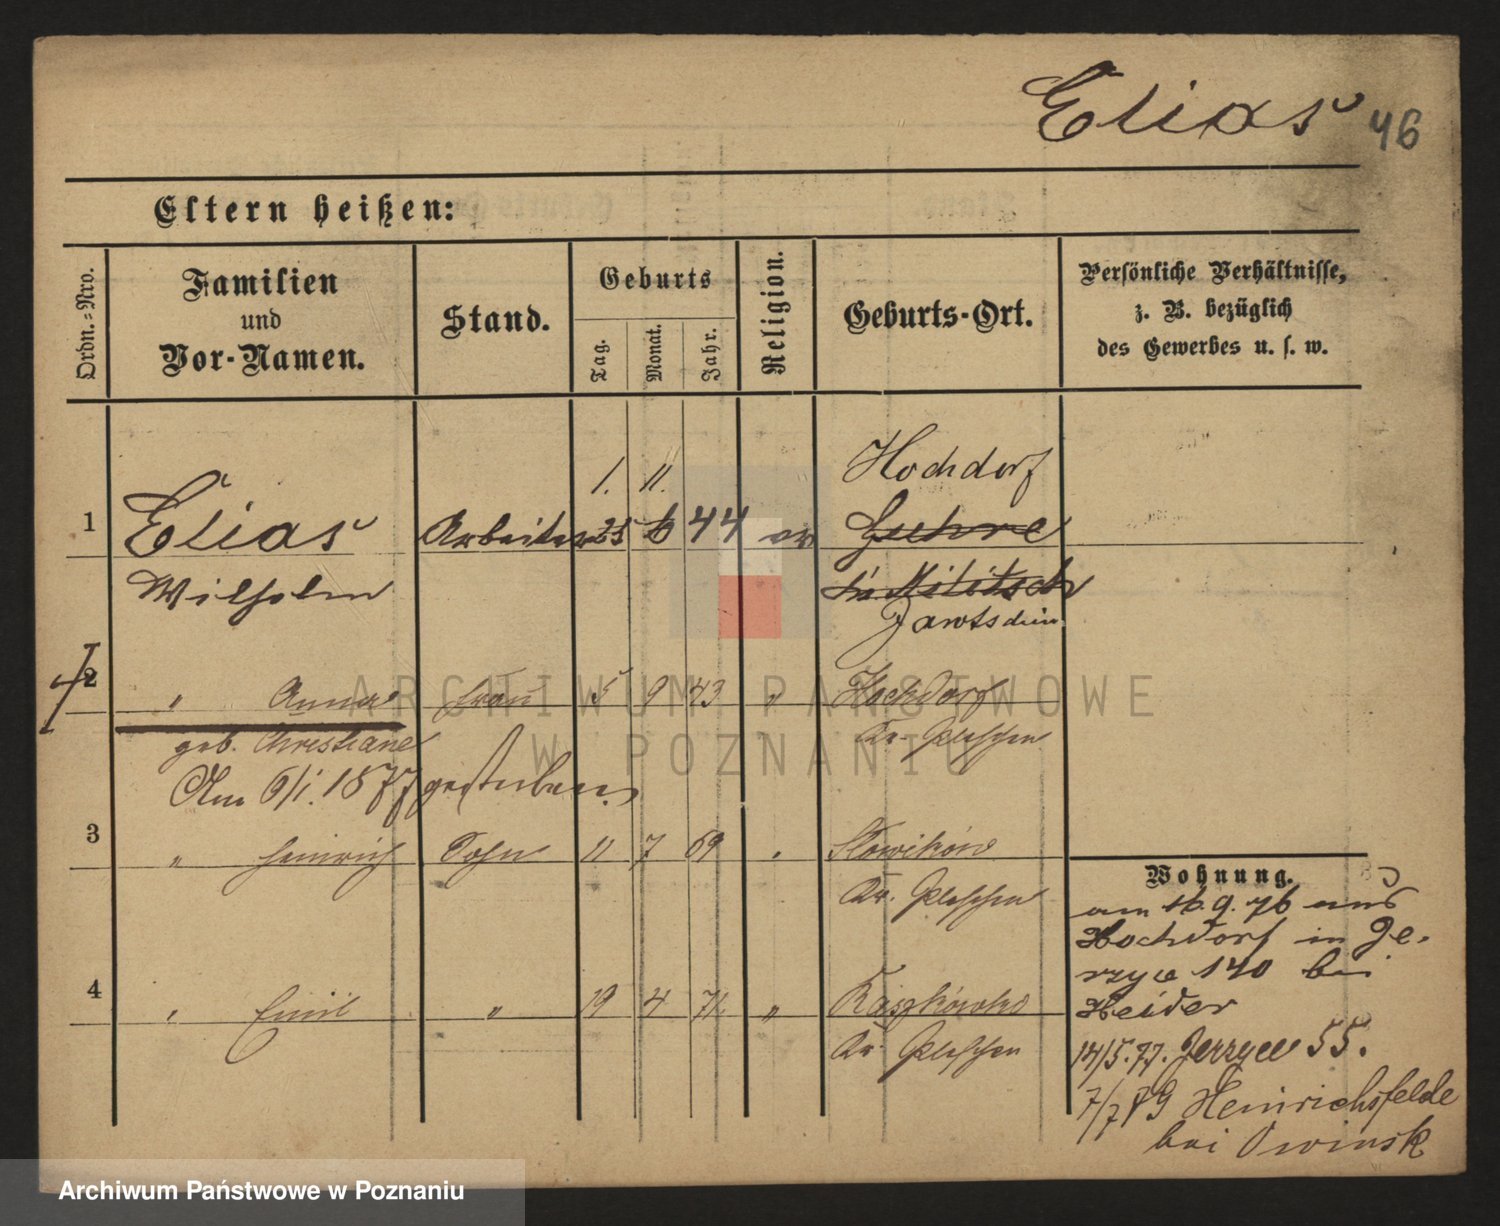 Elias 46
Eltern heißen:
Ordn.-Nro.
Familien
und
Vor-Namen.
Stand.
Geburts
Tag.
Monat.
Jahr.
Religion.
Geburts-Ort.
Persönliche Verhältnisse,
z. B. bezüglich
des Gewerbes u. s. w.
1. 11. Hochdorf
1 Elias Arbeiter 25 6 44 ev Guhre
Wilhelm in Militsch
2 " Anna Frau 5 9 43 " Hochdorf
geb. Christiane Kr. Pleschen
Am 6/1. 1877 gestorben.
3 " Heinrich Sohn 11 7 69 " Slowikowo
Kr. Pleschen
4 " Emil " 19 4 71. "
Kr. Pleschen
Wohnung.
am 16.9.76 aus
Hochdorf in Je-
rzyce 140 bei
Heider
14/5.77. Jerzyce 55.
7/7 79 Heinrichsfelde
bei Owinsk
ARCHIWUM PAŃSTWOWE
W POZNANIU
Archiwum Państwowe w Poznaniu